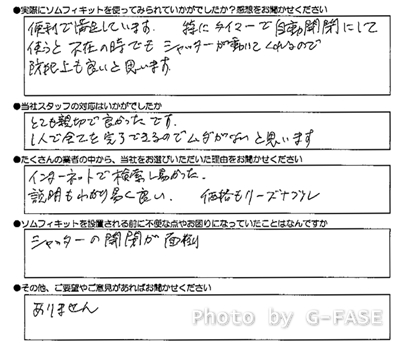 ●実際にソムフィキットを使ってみられていかがでしたか？感想をお聞かせください
便利で満足しています。 特にタイマーで自動開閉にして
使うと 不在の時でも シャッターが動いてくれるので
防犯上も良いと思います
●当社スタッフの対応はいかがでしたか
とても親切で良かったです。
1人で全てを完了できるのでムダがないと思います
●たくさんの業者の中から、当社をお選びいただいた理由をお聞かせください
インターネットで検索し易かった。
説明もわかり易く良い、 価格もリーズナブル
●ソムフィキットを設置される前に不便な点やお困りになっていたことはなんですか
シャッターの開閉が面倒
●その他、ご要望やご意見があればお聞かせください
ありません
Photo by G-FASE